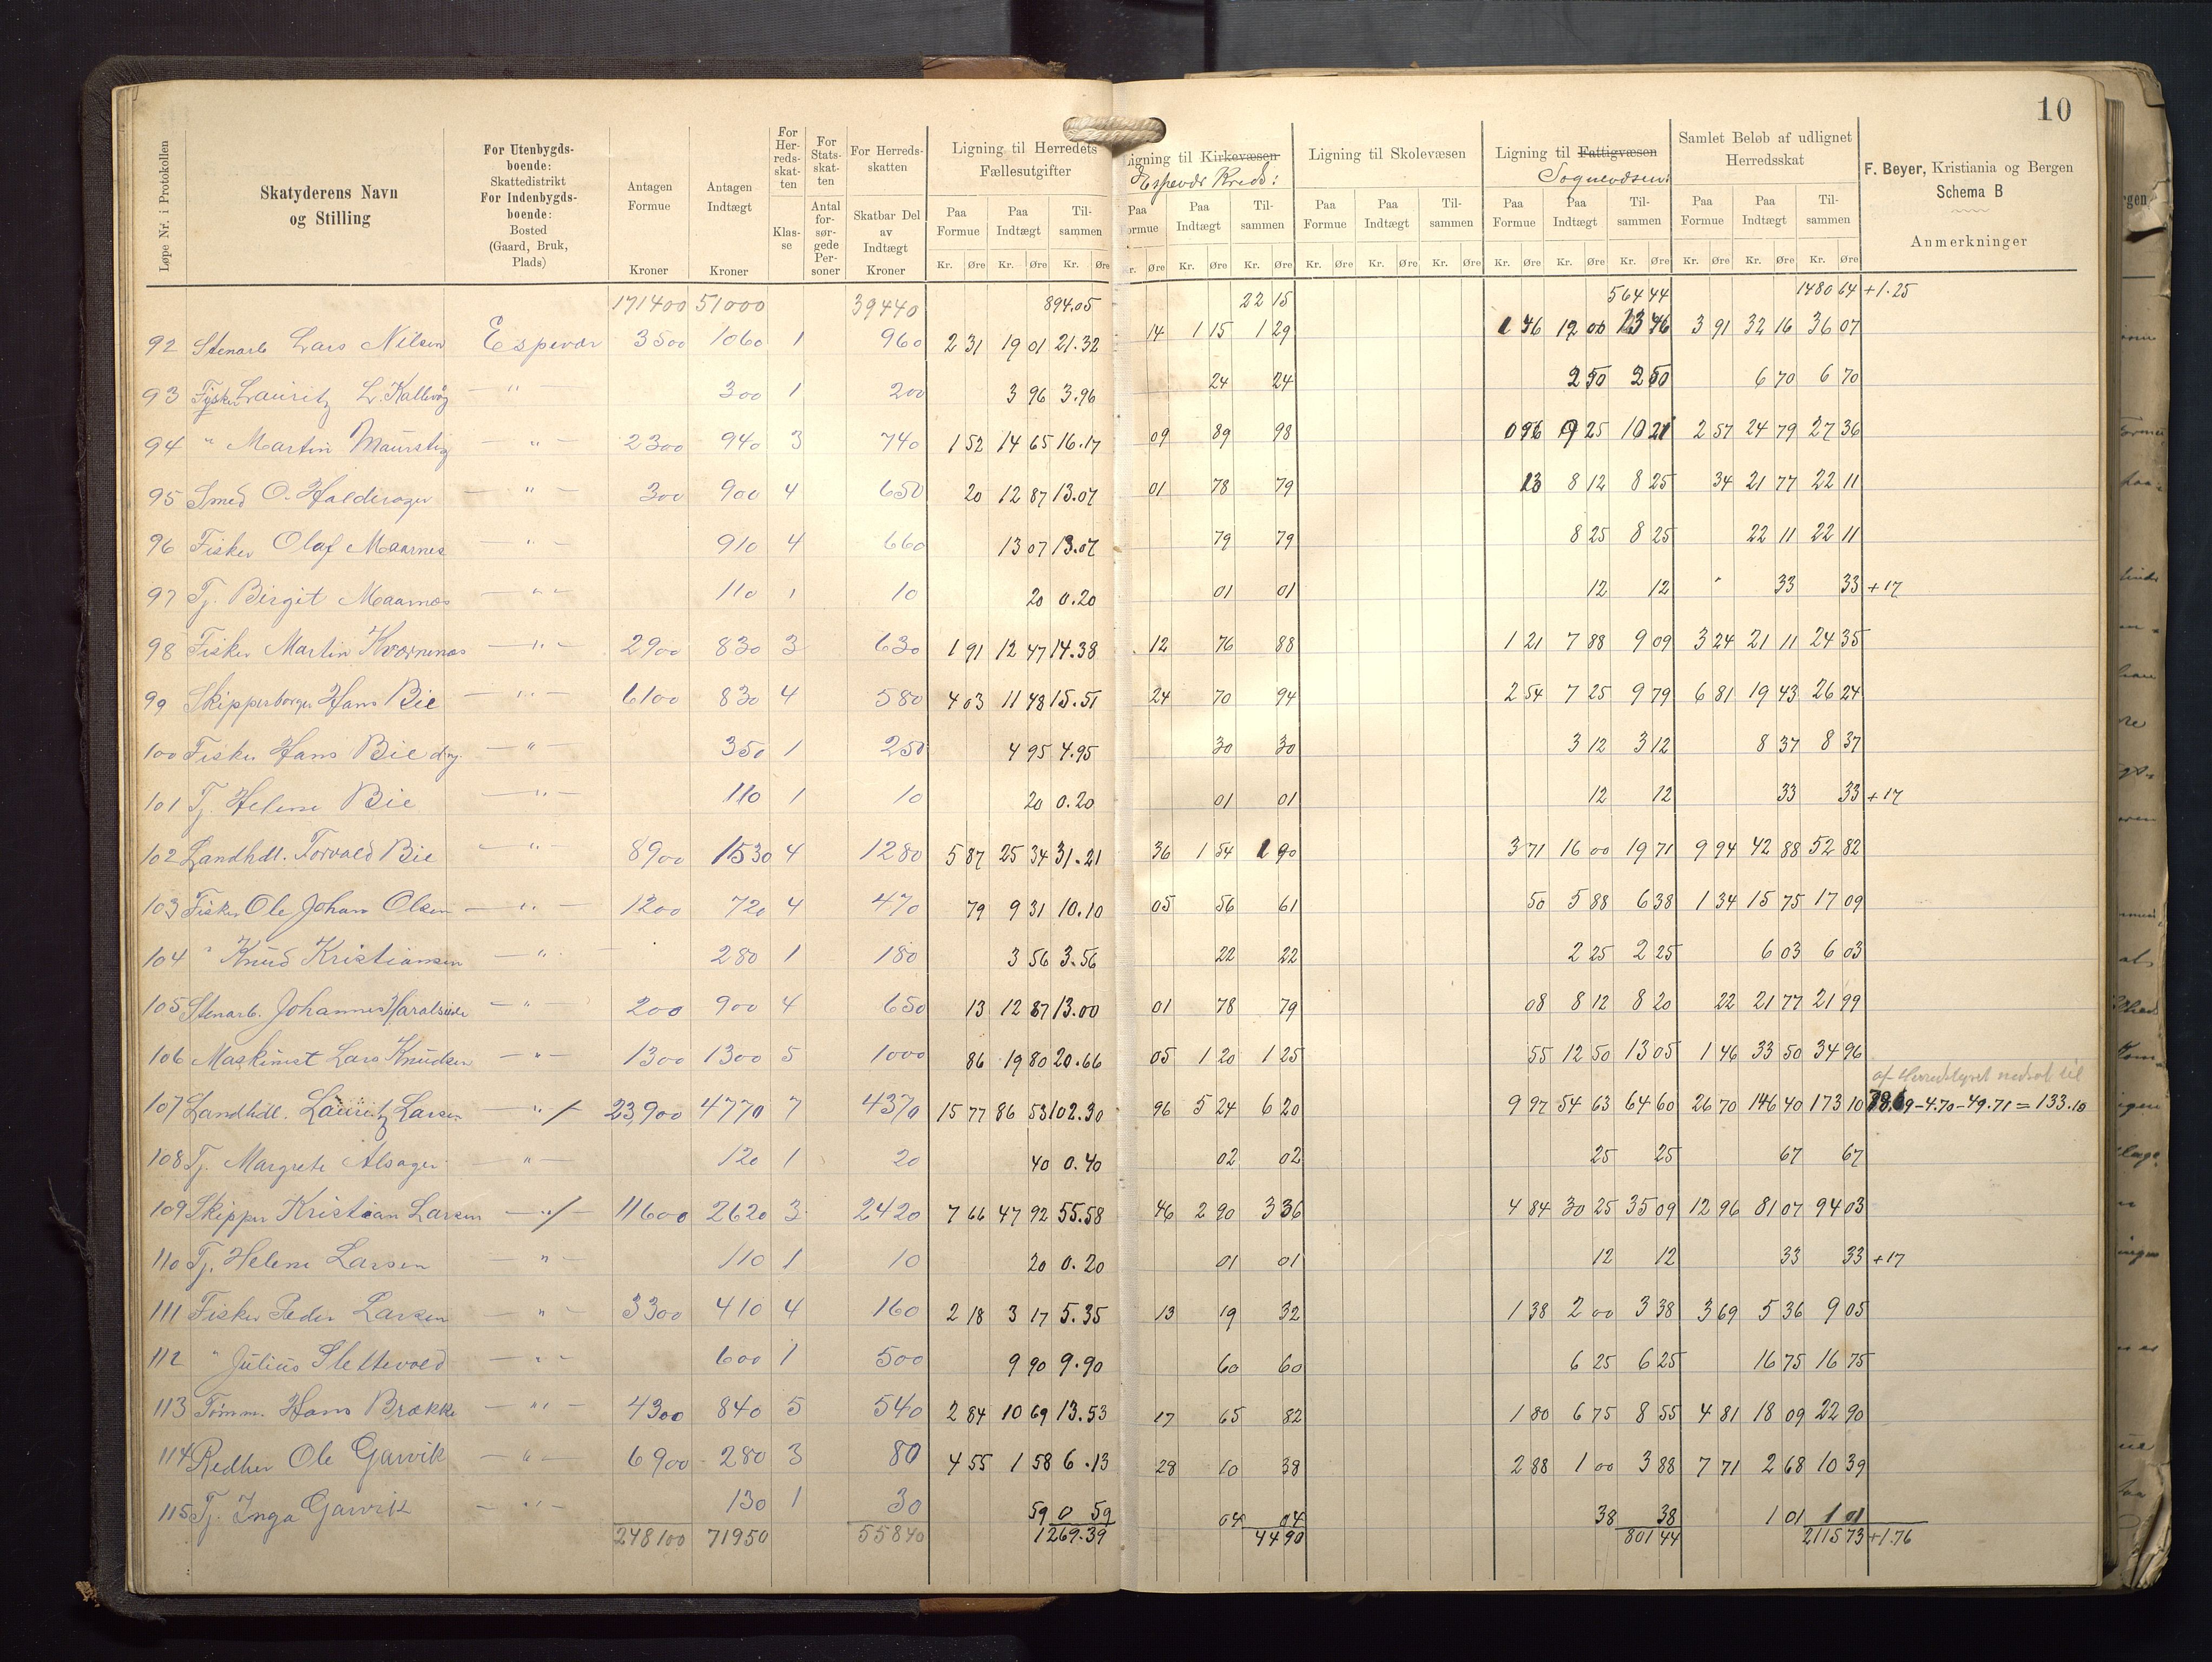 10
Løpe Nr. i Protokollen
Skatyderens Navn og Stilling
For Utenbygdsboende: Skattedistrikt For Indenbygdsboende: Bosted (Gaard, Bruk, Plads)
Antagen Formue Kroner
Antagen Indtægt Kroner
For Herredsskatten Klasse
For Statsskatten Antal forsørgede Personer
For Herredsskatten Skatbar Del av Indtægt Kroner
Ligning til Herredets Fællesutgifter
Paa Formue Paa Indtægt Tilsammen
Kr. Øre Kr. Øre Kr. Øre
Ligning til Kirkevæsen Espevær Kreds:
Paa Formue Paa Indtægt Tilsammen
Kr. Øre Kr. Øre Kr. Øre
Ligning til Skolevæsen
Paa Formue Paa Indtægt Tilsammen
Kr. Øre Kr. Øre Kr. Øre
Ligning til Fattigvæsen Sognevæsen:
Paa Formue Paa Indtægt Tilsammen
Kr. Øre Kr. Øre Kr. Øre
Samlet Beløb af udlignet Herredsskat
Paa Formue Paa Indtægt Tilsammen
Kr. Øre Kr. Øre Kr. Øre
F. Beyer, Kristiania og Bergen
Schema B
Anmerkninger
171400 51000 39440 894.05 22 15 564 44 1480 64 +1.25
92 Stenarb Lars Nilsen Espevær 3500 1060 1 960 2 31 19 01 21.32 14 1 15 1 29 1 46 12 00 13 46 3 91 32 16 36 07
93 Fisker Lauritz L. Kallevåg — " — 300 1 200 3 96 3.96 24 24 2 50 2 50 6 70 6 70
94 " Martin — " — 2300 940 3 740 1 52 14 65 16.17 09 89 98 0 96 9 25 10 21 2 57 24 79 27 36
95 Smed O. Halderager — " — 300 900 4 650 20 12 87 13.07 01 78 79 13 8 12 8 25 34 21 77 22 11
96 Fisker Olaf Maarnes — " — 910 4 660 13 07 13.07 79 79 8 25 8 25 22 11 22 11
97 Tj. Birgit Maarnes — " — 110 1 10 20 0.20 01 01 12 12 33 33 +17
98 Fisker Martin Kværnenes — " — 2900 830 3 630 1 91 12 47 14.38 12 76 88 1 21 7 88 9 09 3 24 21 11 24 35
99 Skipperborger Hans Bie — " — 6100 830 4 580 4 03 11 48 15.51 24 70 94 2 54 7 25 9 79 6 81 19 43 26 24
100 Fisker Hans Bie d.y. — " — 350 1 250 4 95 4.95 30 30 3 12 3 12 8 37 8 37
101 Tj. Helene Bie — " — 110 1 10 20 0.20 01 01 12 12 33 33 +17
102 Landhdl. Torvald Bie — " — 8900 1530 4 1280 5 87 25 34 31.21 36 1 54 1 90 3 71 16 00 19 71 9 94 42 88 52 82
103 Fisker Ole Johan Olsen — " — 1200 720 4 470 79 9 31 10.10 05 56 61 50 5 88 6 38 1 34 15 75 17 09
104 " Knud Kristiansen — " — 280 1 180 3 56 3.56 22 22 2 25 2 25 6 03 6 03
105 Stenarb. Johannes — " — 200 900 4 650 13 12 87 13.00 01 78 79 08 8 12 8 20 22 21 77 21 99
106 Maskinist Lars Knudsen — " — 1300 1300 5 1000 86 19 80 20.66 05 1 20 1 25 55 12 50 13 05 1 46 33 50 34 96
af Herredstyret nedsat til
107 Landhdl. Lauritz Larsen — " — 23,900 4770 7 4370 15 77 86 53 102.30 96 5 24 6 20 9 97 54 63 64 60 26 70 146 40 173 10 78.69-4.70-49.71=133.10
108 Tj. Margrete Alsager — " — 120 1 20 40 0.40 02 02 25 25 67 67
109 Skipper Kristian Larsen — " — 11600 2620 3 2420 7 66 47 92 55.58 46 2 90 3 36 4 84 30 25 35 09 12 96 81 07 94 03
110 Tj. Helene Larsen — " — 110 1 10 20 0.20 01 01 12 12 33 33 +17
111 Fisker Peder Larsen — " — 3300 410 4 160 2 18 3 17 5.35 13 19 32 1 38 2 00 3 38 3 69 5 36 9 05
112 " Julius Slettevold — " — 600 1 500 9 90 9.90 60 60 6 25 6 25 16 75 16 75
113 Tømm. Hans Brække — " — 4300 840 5 540 2 84 10 69 13.53 17 65 82 1 80 6 75 8 55 4 81 18 09 22 90
114 Redher Ole Garvik — " — 6900 280 3 80 4 55 1 58 6.13 28 10 38 2 88 1 00 3 88 7 71 2 68 10 39
115 Tj. Inga Garvik — " — 130 1 30 59 0 59 04 04 38 38 1 01 1 01
248100 71950 55840 1269.39 44 90 801 44 2115 73 +1.76